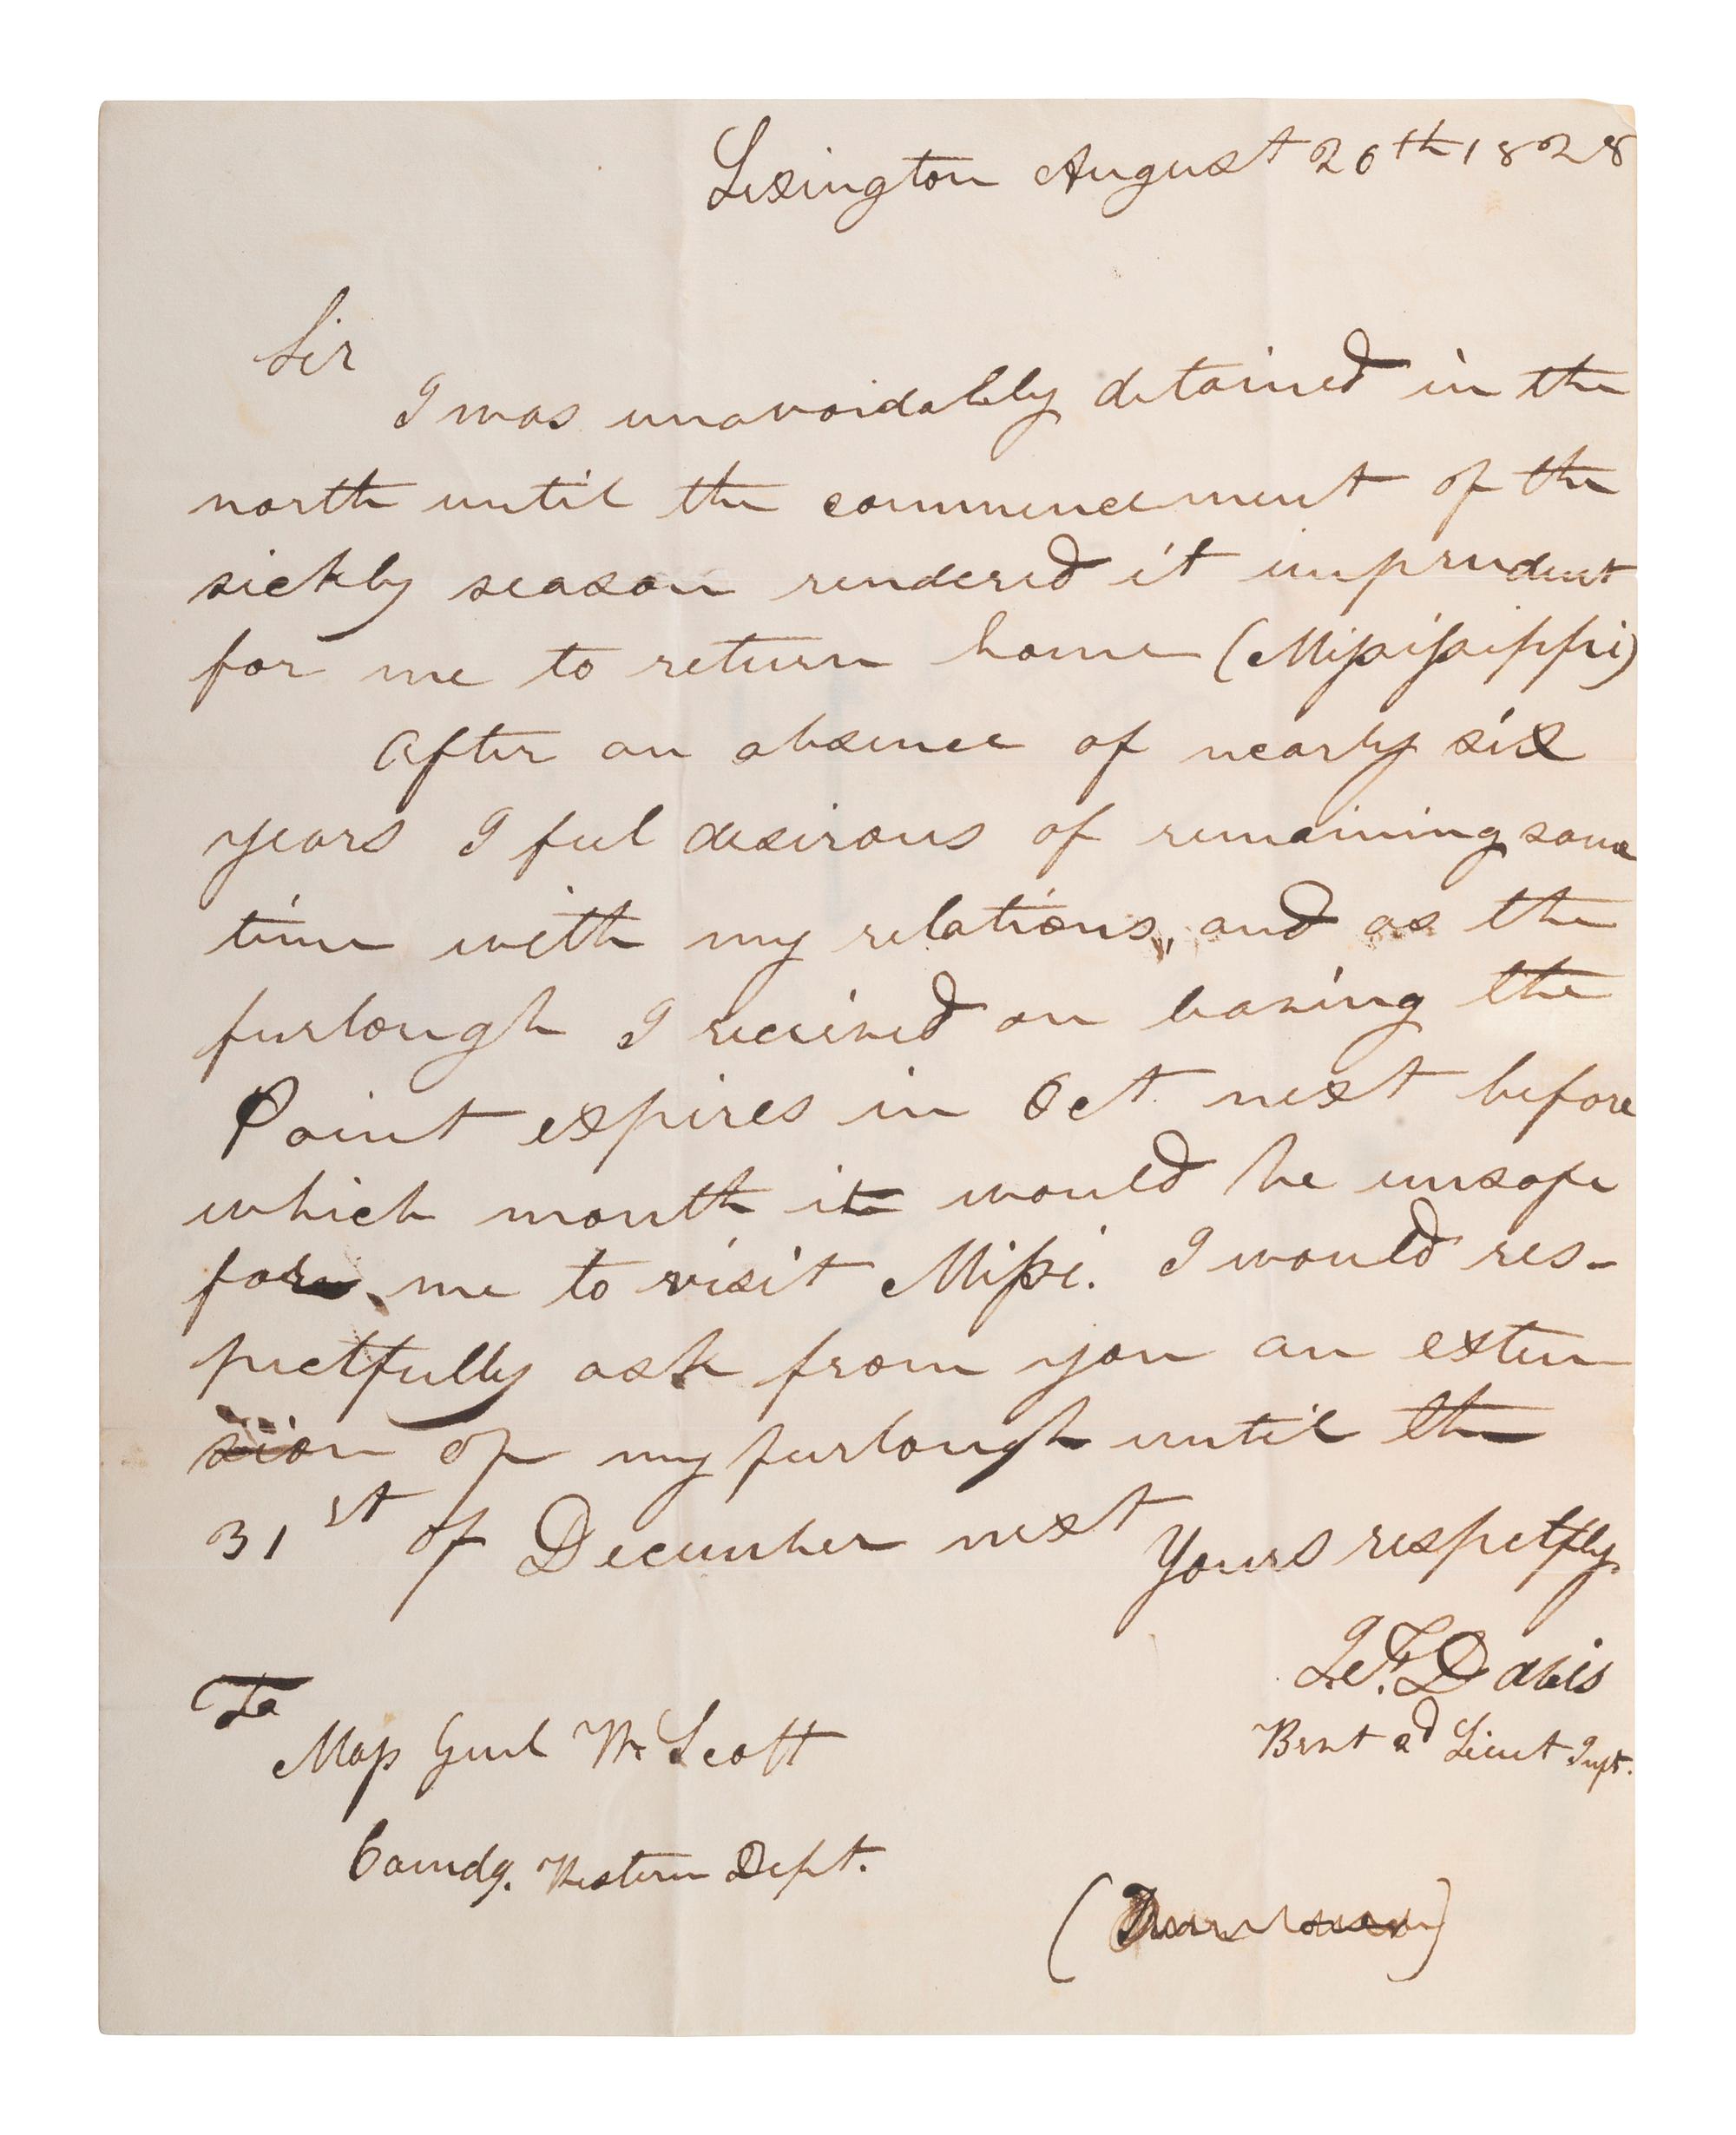 Lexington August 26th 1828
Sir
I was unavoidably detained in the
north until the commencement of the
sickly season rendered it imprudent
for me to return home (Missisippi)
After an absence of nearly six
years I feel desirous of remaining some
time with my relations, and as the
furlough I received on leaving the
Point expires in Oct. next before
which month it would be unsafe
for me to visit Missi. I would res-
pectfully ask from you an exten
sion of my furlough until the
31st of December next
Yours respetfly
J. F. Davis
Brvt 2d Lieut Inft.
To
Maj Genl W. Scott
Comdg. Western Dept.